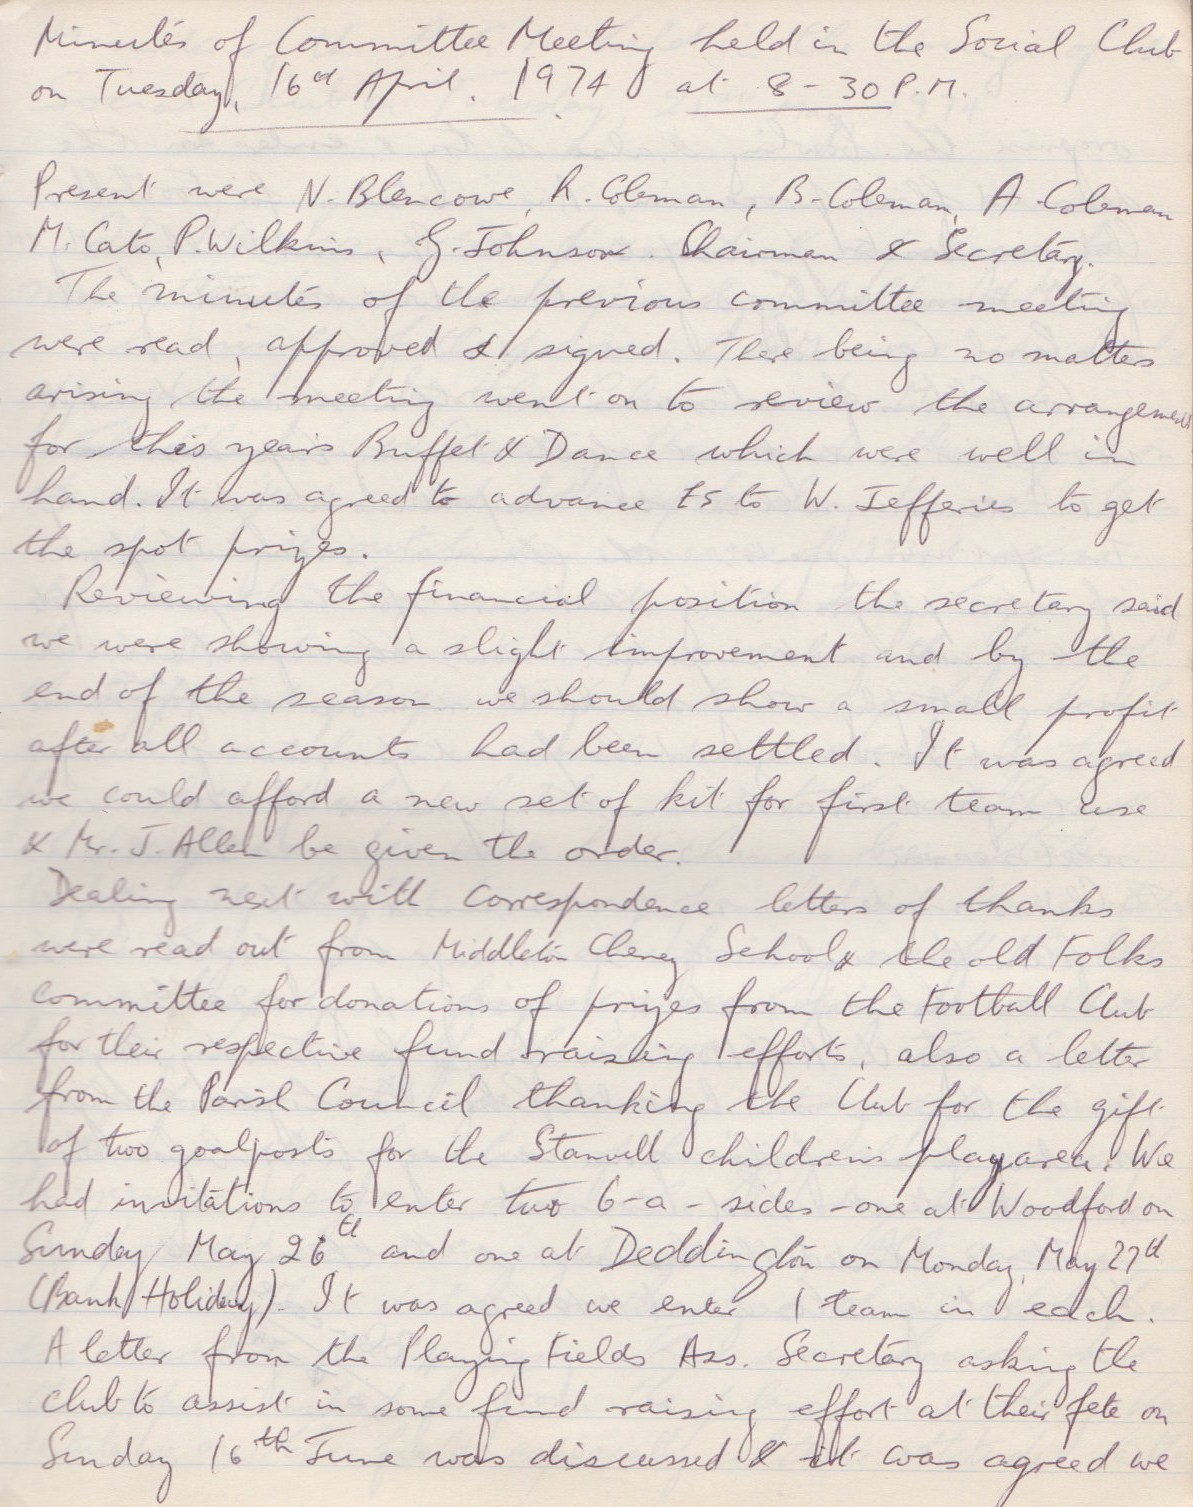 Minutes of Committee Meeting held in the Social Club
on Tuesday, 16th April. 1974 at 8-30 P.M.
Present were N. Blencowe, R. Coleman, B. Coleman, A. Coleman
M. Cato, P. Wilkins, G. Johnson. Chairman & Secretary.
The minutes of the previous committee meeting
were read, approved & signed. There being no matters
arising the meeting went on to review the arrangements
for this years Buffet & Dance which were well in
hand. It was agreed to advance £5 to W. Jefferies to get
the spot prizes.
Reviewing the financial position the secretary said
we were showing a slight improvement and by the
end of the season we should show a small profit
after all accounts had been settled. It was agreed
we could afford a new set of kit for first team use
& Mr. J. Allen be given the order.
Dealing next with correspondence letters of thanks
were read out from Middleton Cheney School & the old Folks
committee for donations of prizes from the Football Club
for their respective fund raising efforts, also a letter
from the Parish Council thanking the Club for the gift
of two goalposts for the Stanwell children's playarea. We
had invitations to enter two 6-a-sides - one at Woodford on
Sunday May 26th and one at Deddington on Monday, May 27th
(Bank Holiday). It was agreed we enter 1 team in each.
A letter from the Playing Fields Ass. Secretary asking the
club to assist in some fund raising effort at their fete on
Sunday 16th June was discussed & it was agreed we